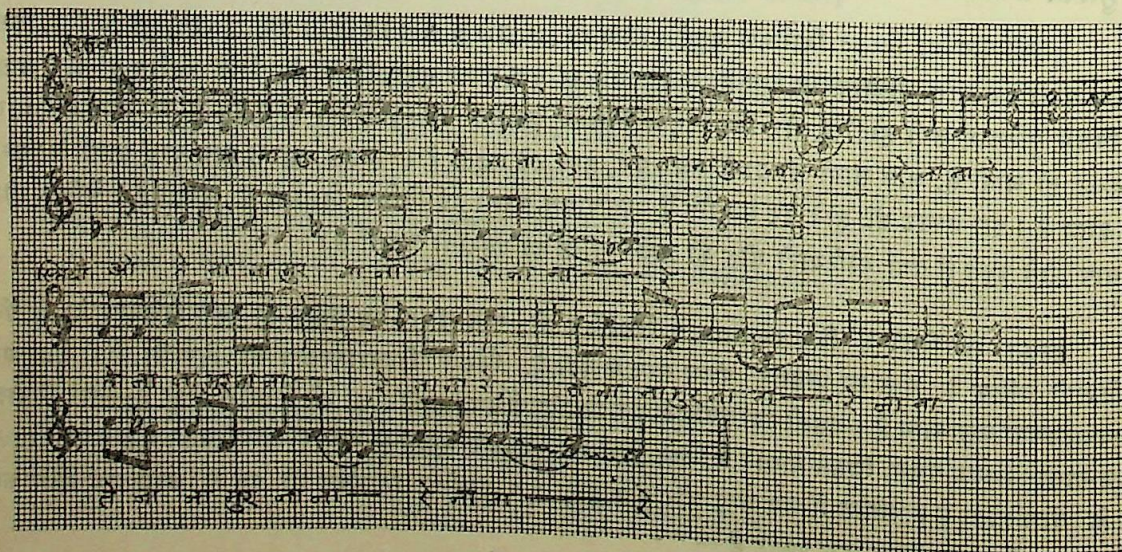 ते ना ना सुर ना ना रे ना ना रे, ते ना ना सुर ना ना रे ना ना रे,
ओ ते ना ना सुर ना ना — रे ना ना — रे
ते ना ना सुर ना ना — रे ना ना रे, ते ना ना सुर ना ना — रे ना ना
ते ना ना सुर ना ना — रे ना ना — रे